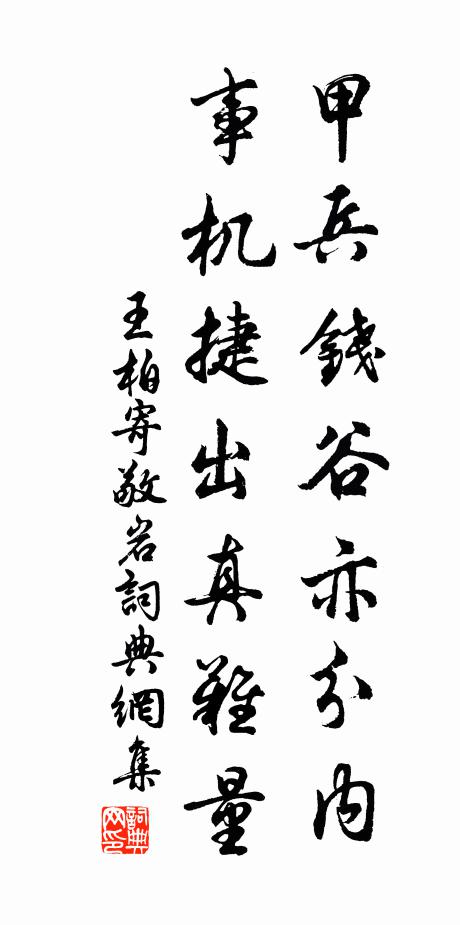 甲兵錢谷亦分內
事机捷出真難量
王柏寄敬岩詞典網集
詞典网印